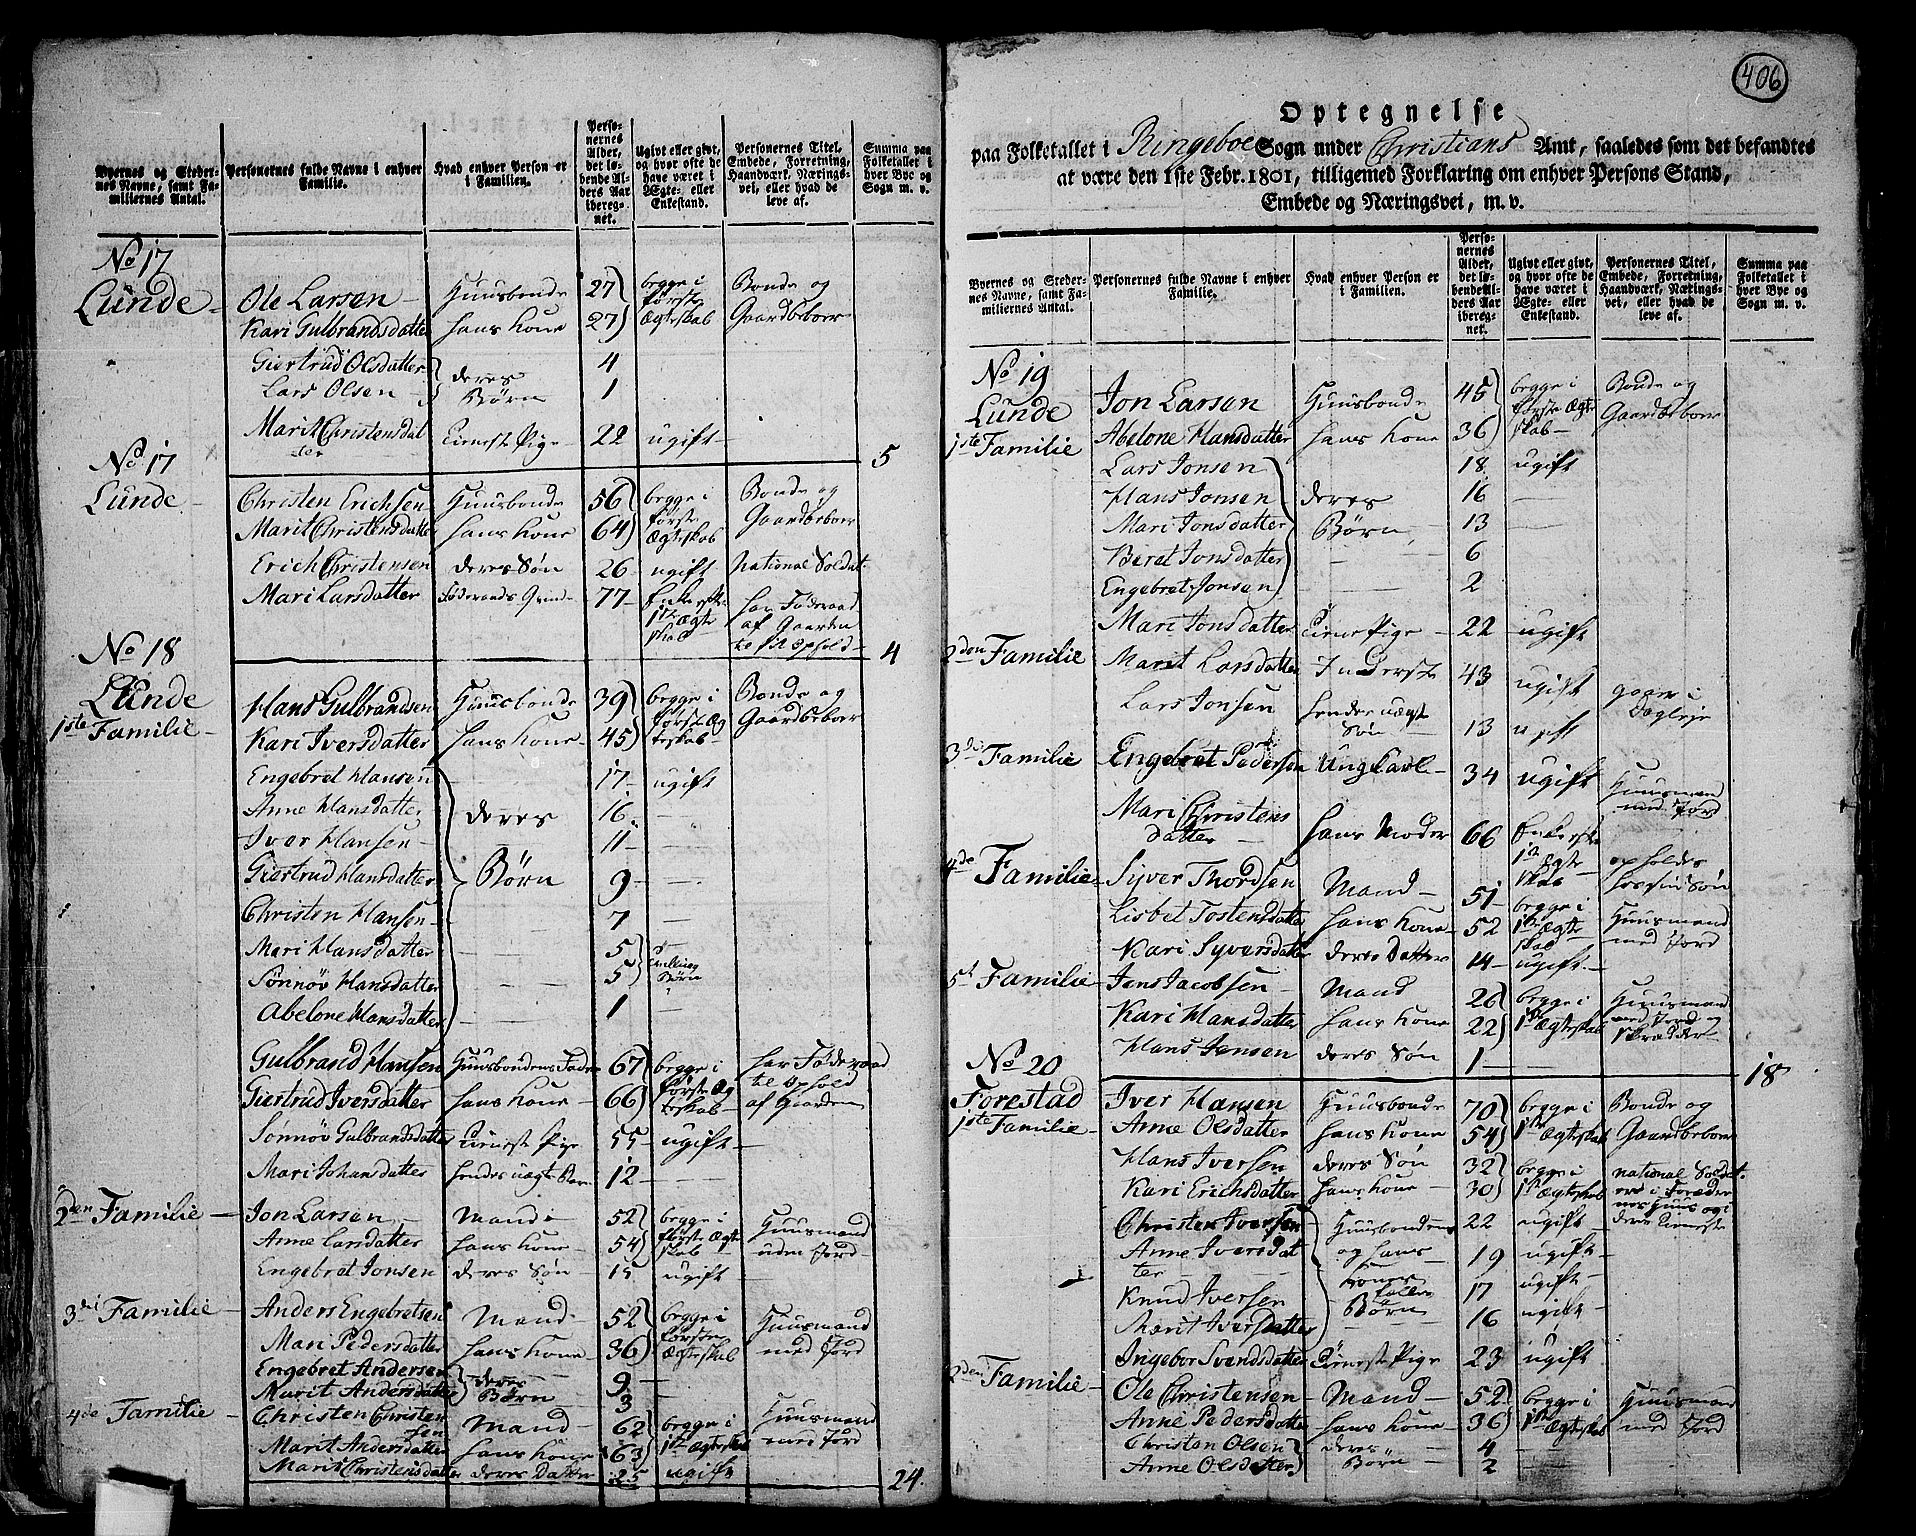 Byernes og Stedernes Navne, samt Familiernes Antal. | Personernes fulde Navne i enhver Familie. | Hvad enhver Person er i Familien. | Personernes Alder, det løbende Alders Aar iberegnet. | Ugivt eller givt, og hvor ofte de have været i Ægte- eller Enkestand. | Personernes Titel, Embede, Forretning, Haandværk, Næringsvei, eller hvad de leve af. | Summa paa Folketallet i hver Bye og Sogn m. v.
No 17
Lunde - Ole Larsen - Huusbonde 27) begge i første Bonde og
Kari Gulbrandsdatter hans kone 27) Ægteskab Gaardbeboer
Giertrud Olsdatter } deres 4
Lars Olsen - } Børn 1
Marit Christensdatter Tienestpige 22 ugift - 5
No 17
Lunde - Christen Erichsen Huusbonde 56) begge i Bonde og
Marit Christensdatter hans kone 64) første Ægteskab Gaardbeboer
Erich Christensen deres Søn 26 - ugift - national Soldat
Mari Larsdatter Føderaads Qvinde 77 - Enke efter 1ste Ægteskab har Føderaad af Gaarden til Ophold - 4
No 18
Lunde
1ste Familie - Hans Gulbrandsen Huusbonde 39) begge i Bonde og
Kari Iversdatter hans kone - 45) første Ægteskab - Gaardbeboer
Engebret Hansen 17 - ugift
Anne Hansdatter deres 16. -
Iver Hansen - 11 -
Giertrud Hansdatter Børn 9 -
Christen Hansen - 7 -
Mari Hansdatter 5) Tvilling
Sønnøv Hansdatter 5) Børn
Abelone Hansdatter 1 -
Gulbrand Hansen Huusbondens Fader 67) begge i har Føderaad
Giertrud Iversdatter hans kone - 66) første Ægteskab - til Ophold af Gaarden
Sønnøv Gulbrandsdatter Tienestpige 55 - ugift -
Mari Johansdatter hendes uægte Barn 12 -
2den Familie - Jon Larsen - Mand - 52) begge i Huusmand
Anne Larsdatter hans kone - 54) første Ægteskab uden Jord
Engebret Jonsen deres Søn - 15 ugift -
3die Familie - Anders Engebretsen Mand - 52) begge i Huusmand
Mari Pedersdatter hans kone - 36) første Ægteskab med Jord
Engebret Andersen } deres 9 -
Marit Andersdatter } Børn - 3
4de Familie - Christen Christensen Mand - 62) begge i Huusmand
Marit Andersdatter hans kone 63) 1ste Ægteskab med Jord
Marit Christensdatter deres Datter 25 ugift 24.
406
Optegnelse
paa Folketallet i Ringeboe Sogn under Christians Amt, saaledes som det befandtes
at være den 1ste Febr. 1801, tilligemed Forklaring om enhver Persons Stand,
Embede og Næringsvei, m. v.
Byernes og Stedernes Navne, samt Familiernes Antal. | Personernes fulde Navne i enhver Familie. | Hvad enhver Person er i Familien. | Personernes Alder, det løbende Alders Aar iberegnet. | Ugivt eller givt, og hvor ofte de have været i Ægte- eller Enkestand. | Personernes Titel, Embede, Forretning, Haandværk, Næringsvei, eller hvad de leve af. | Summa paa Folketallet i hver Bye og Sogn m. v.
No 19
Lunde Jon Larsen Huusbonde 45) begge i Bonde og
1ste Familie Abelone Hansdatter hans kone 36) første Ægteskab - Gaardbeboer
Lars Jonsen 18 ugift
Hans Jonsen deres 16 -
Mari Jonsdatter Børn 13 -
Beret Jonsdatter 6
Engebret Jonsen 2
Mari Jonsdatter Tienestpige - 22 - ugift
2den Familie Marit Larsdatter Inderste 43 ugift gaaer i Dagleje
Lars Jonsen hendes uægte Søn 13 ugift
3die Familie Engebret Pedersen Ungkarl - 34 ugift Huusmand med Jord
Mari Christensdatter - hans Moder 66 Enke efter 1ste Ægteskab opholdes hos sin Søn
4de Familie - Syver Thordsen Mand - 51 - begge i Huusmand
Lisbet Tostensdatter hans kone - 52 1ste Ægteskab med Jord
Kari Syversdatter deres Datter 14 - ugift. -
5te Familie - Jens Jacobsen Mand 26) begge i Huusmand
Kari Hansdatter hans kone 22) 1ste Ægteskab med Jord og Skrædder
Hans Jensen deres Søn 1 - 18
No 20
Forestad Iver Hansen Huusbonde 70) begge i Bonde og
1ste Familie - Anne Olsdatter hans kone 54) 1ste Ægteskab Gaardbeboer
Hans Iversen deres Søn 32) begge i national Soldat
Kari Erichsdatter hans kone - 30) 1ste Ægteskab ere i Forældernes Huus og i deres Tieneste
Christen Iversen Huusbondens 22 ugift -
Anne Iversdatter og hans 19 ugift -
Knud Iversen Kones fælles 17 ugift -
Marit Iversdatter Børn 16 ugift -
Ingebor Svendsdatter Tienestpige 23 ugift
2den Familie - Ole Christensen - Mand - 52) begge i Huusmand
Anne Pedersdatter hans kone 36) 1ste Ægteskab med Jord
Christen Olsen } deres 4 -
Anne Olsdatter } Børn - 2 -